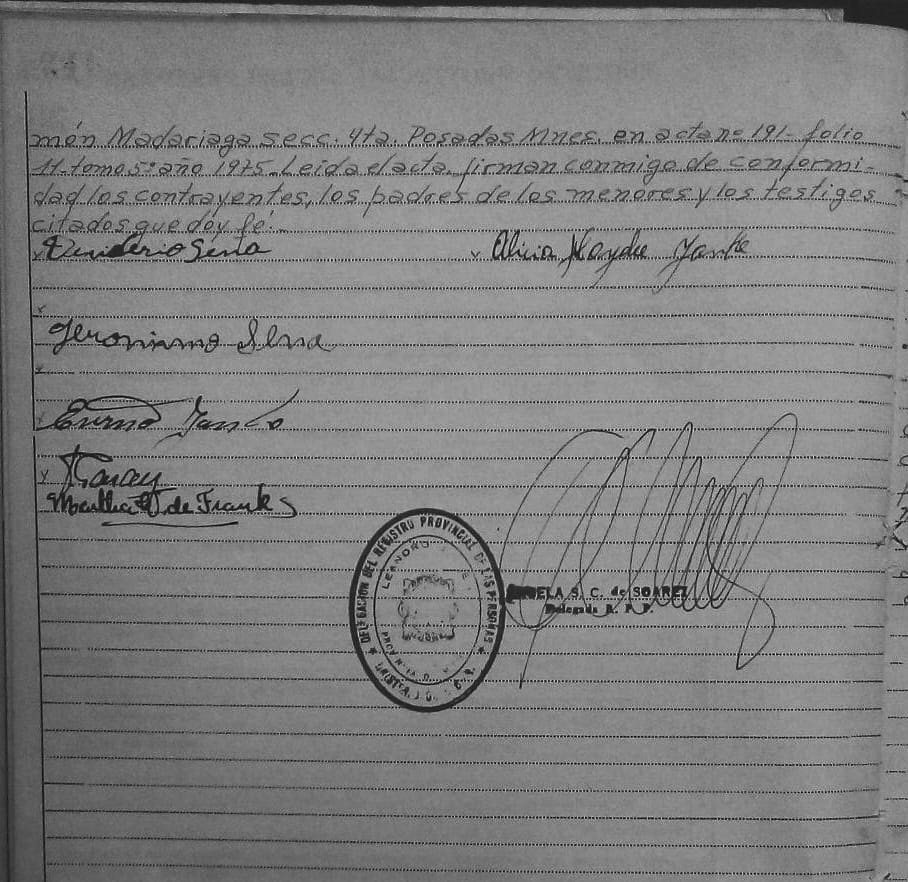 món Madariaga secc. 4ta. Posadas Mnes. en acta nº 191- folio
11- tomo 5º año 1975. Leída el acta, firman conmigo de conformi-
dad los contrayentes, los padres de los menores y los testigos
citados que doy fé.-
Alicia Haydee Janke
Jeronimo Sena
Martha de Frank
DELEGACION DEL REGISTRO PROVINCIAL DE LAS PERSONAS
LEANDRO
S. C. de SOAREZ
Delegada R. P. P.